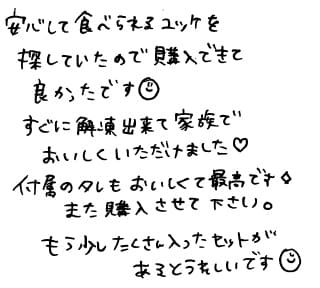 安心して食べられるユッケを
探していたので購入できて
良かったです☺
すぐに解凍出来て家族で
おいしくいただけました♡
付属のタレもおいしくて最高です✧
また購入させて下さい。
もう少したくさん入ったセットが
あるとうれしいです☺